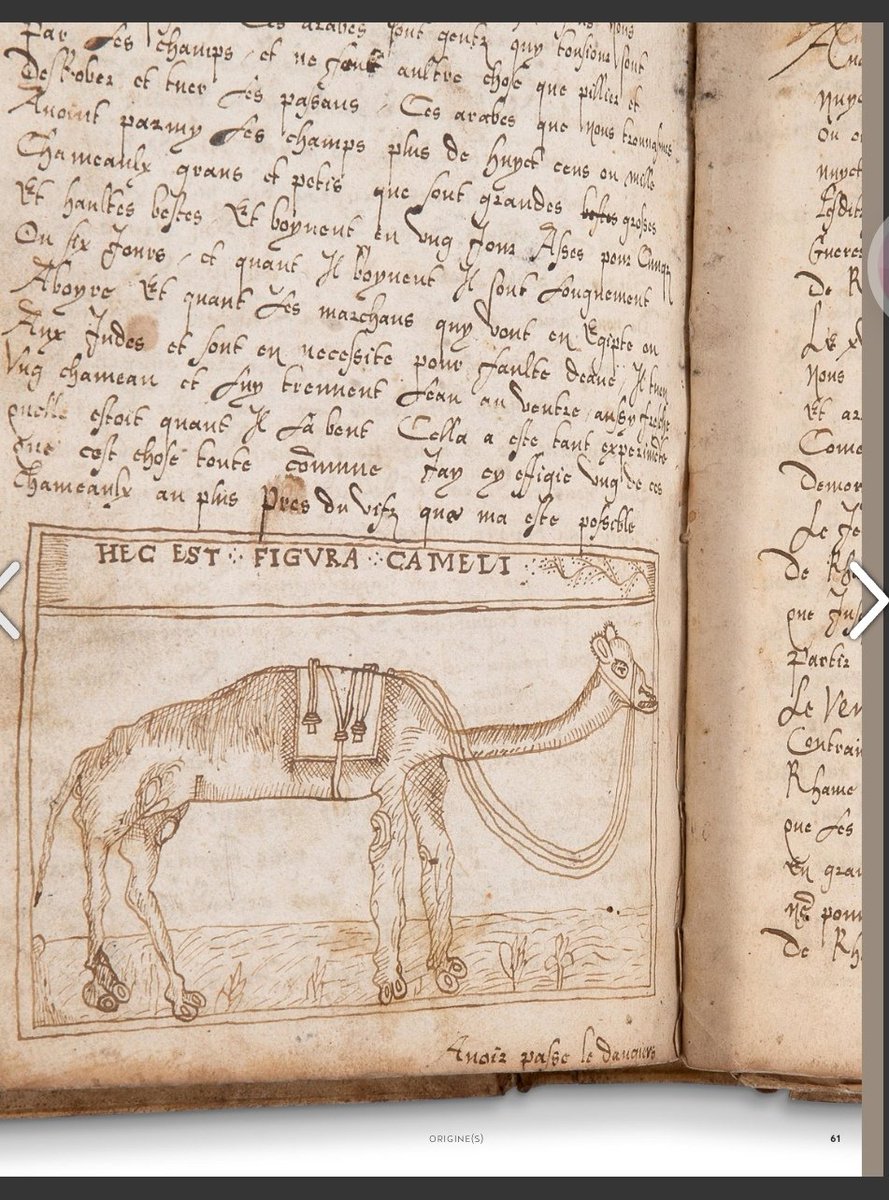 Ces arabes sont gentz quy tousiours sont
Par les champs et ne font aultre chose que pillier et
Desrober et tuer les pasans Ces arabes que nous trouvasmes
Avoint parmy les champs plus de huyct cens ou mille
Chameaulx grans et petis que sont grandes bestes grosses
Et haultes bestes Et boyvent en ung Jour Asses pour Cinq
Ou six Jours et quant Il boyvent Il sont longuement
Aboyre Et quant les marchans quy vont en Egipte ou
Aux Indes et sont en necessite pour faulte deaue Il tuen
Ung chameau et luy trennent leau au ventre aussy fresche
quelle estoit quant Il la beut Cella a este tant experimête
que cest chose toute cômune Jay cy effigie ung de ces
Chameaulx au plus Pres du vifz que ma este possible
HEC EST FIGVRA CAMELI
Avoir passe le dangers
nuyc
ou
nuyct
De R
Le
Nous
Et ar
Come
Demor
Le
De Rh
que Jus
Partir
Le Ven
Contrai
Rhame
que les
En gran
pour
De Rh
ORIGINE(S)
61